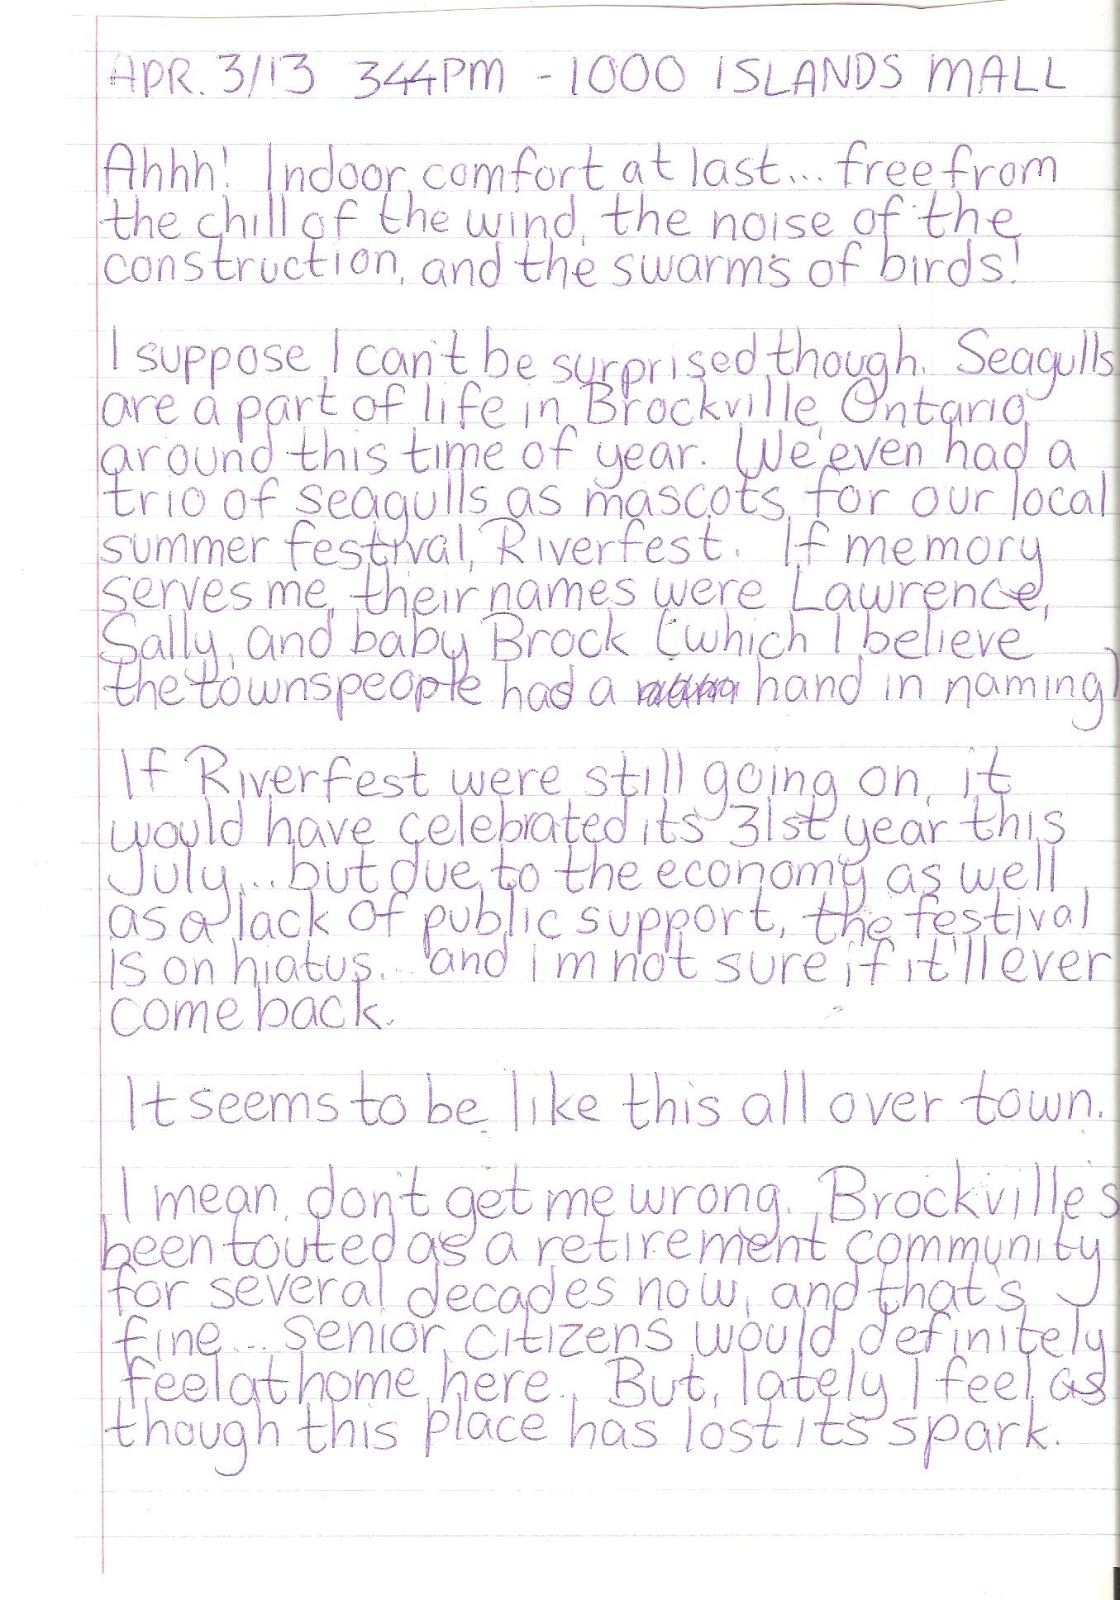 APR. 3/13 344PM - 1000 ISLANDS MALL
Ahhh! Indoor comfort at last... free from
the chill of the wind, the noise of the
construction, and the swarms of birds!
I suppose I can't be surprised though. Seagulls
are a part of life in Brockville, Ontario
around this time of year. We even had a
trio of seagulls as mascots for our local
summer festival, Riverfest. If memory
serves me, their names were Lawrence,
Sally, and baby Brock (which I believe
the townspeople had a hand in naming)
If Riverfest were still going on, it
would have celebrated its 31st year this
July... but due to the economy as well
as a lack of public support, the festival
is on hiatus... and i'm not sure if it'll ever
come back.
It seems to be like this all over town.
I mean, don't get me wrong. Brockville's
been touted as a retirement community
for several decades now, and that's
fine... senior citizens would definitely
feel at home here. But, lately I feel as
though this place has lost its spark.